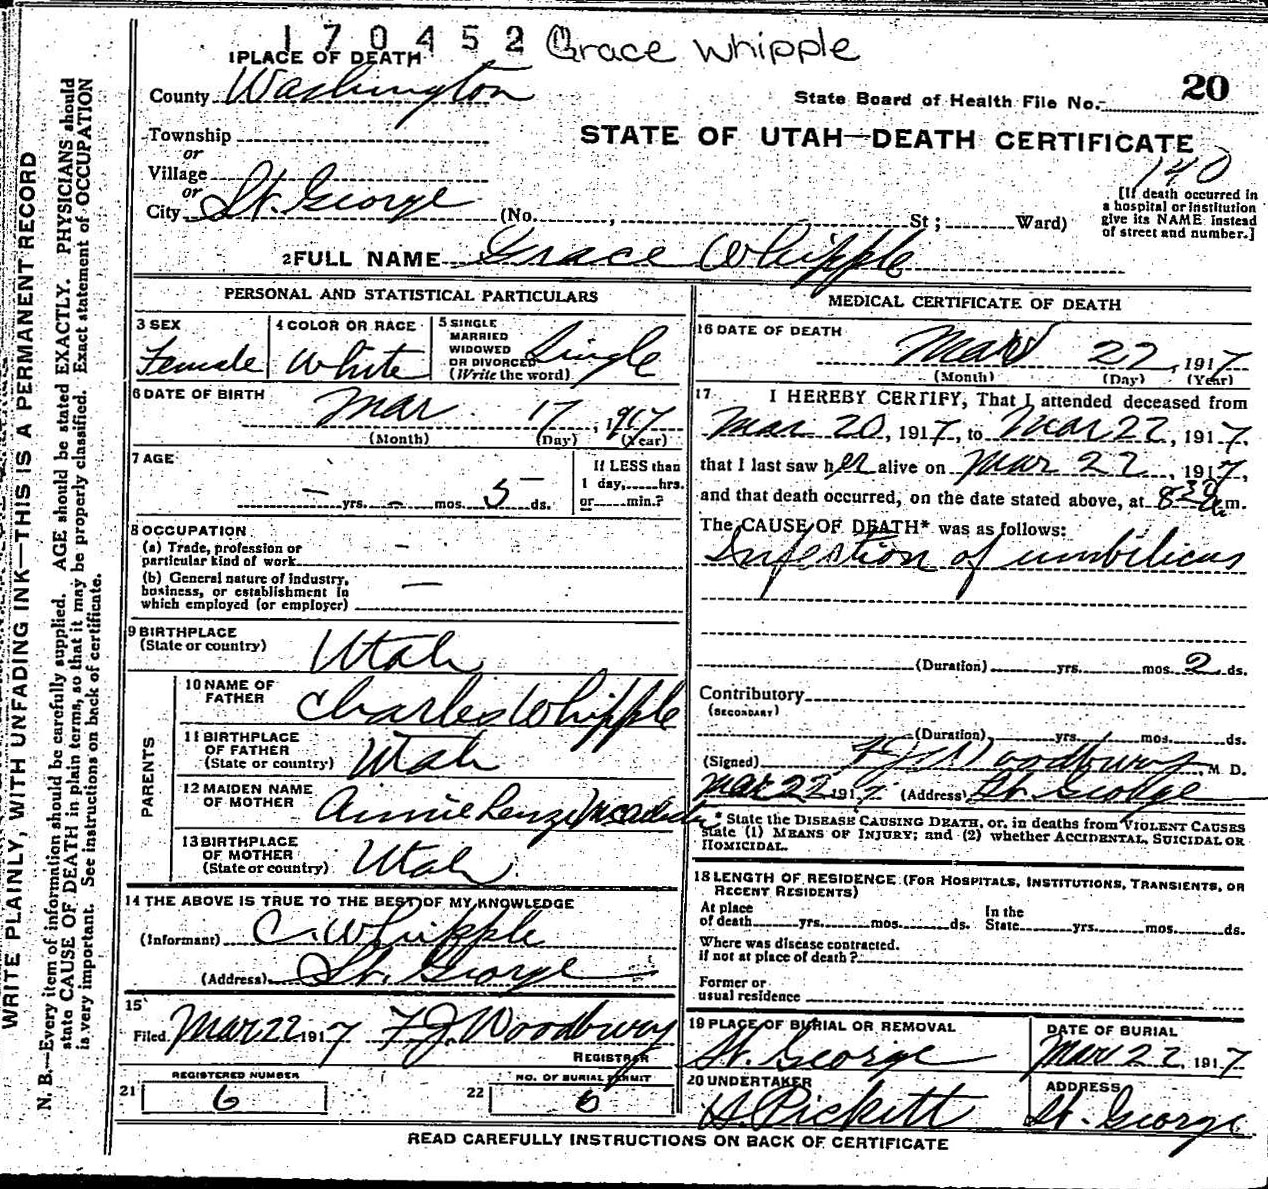 170452 Grace Whipple
1 PLACE OF DEATH
County Washington
State Board of Health File No. 20
Township
or
STATE OF UTAH—DEATH CERTIFICATE
140
Village
or
City St. George (No. , St; Ward)
[If death occurred in
a hospital or institution
give its NAME instead
of street and number.]
2 FULL NAME Grace Whipple
PERSONAL AND STATISTICAL PARTICULARS
3 SEX
Female
4 COLOR OR RACE
White
5 SINGLE
MARRIED
WIDOWED
OR DIVORCED
(Write the word)
Single
6 DATE OF BIRTH
Mar 17, 1917
(Month) (Day) (Year)
7 AGE
– yrs. – mos. 5 ds.
If LESS than
1 day, hrs.
or min.?
8 OCCUPATION
(a) Trade, profession or
particular kind of work –
(b) General nature of industry,
business, or establishment in
which employed (or employer) –
9 BIRTHPLACE
(State or country) Utah
PARENTS
10 NAME OF
FATHER Charles Whipple
11 BIRTHPLACE
OF FATHER
(State or country) Utah
12 MAIDEN NAME
OF MOTHER Annie Lenzi
13 BIRTHPLACE
OF MOTHER
(State or country) Utah
14 THE ABOVE IS TRUE TO THE BEST OF MY KNOWLEDGE
(Informant) C. Whipple
(Address) St. George
15
Filed Mar 22 1917 F.J. Woodbury
REGISTRAR
REGISTERED NUMBER
21 6
NO. OF BURIAL PERMIT
22 6
MEDICAL CERTIFICATE OF DEATH
16 DATE OF DEATH
Mar 22, 1917
(Month) (Day) (Year)
17 I HEREBY CERTIFY, That I attended deceased from
Mar 20, 1917, to Mar 22, 1917,
that I last saw her alive on Mar 22, 1917,
and that death occurred, on the date stated above, at 8 30 a.m.
The CAUSE OF DEATH* was as follows:
Infection of umbilicus
(Duration) yrs. mos. 2 ds.
Contributory
(SECONDARY)
(Duration) yrs. mos. ds.
(Signed) F.J. Woodbury, M. D.
Mar 22, 1917 (Address) St. George
* State the DISEASE CAUSING DEATH, or, in deaths from VIOLENT CAUSES
state (1) MEANS OF INJURY; and (2) whether ACCIDENTAL, SUICIDAL OR
HOMICIDAL.
18 LENGTH OF RESIDENCE (FOR HOSPITALS, INSTITUTIONS, TRANSIENTS, OR
RECENT RESIDENTS)
At place
of death yrs. mos. ds.
In the
State yrs. mos. ds.
Where was disease contracted.
if not at place of death?
Former or
usual residence
19 PLACE OF BURIAL OR REMOVAL
St. George
DATE OF BURIAL
Mar 22, 1917
20 UNDERTAKER
A. Pickett
ADDRESS
St. George
READ CAREFULLY INSTRUCTIONS ON BACK OF CERTIFICATE
WRITE PLAINLY, WITH UNFADING INK—THIS IS A PERMANENT RECORD
N. B.—Every item of information should be carefully supplied. AGE should be stated EXACTLY. PHYSICIANS should
state CAUSE OF DEATH in plain terms, so that it may be properly classified. Exact statement of OCCUPATION
is very important. See instructions on back of certificate.